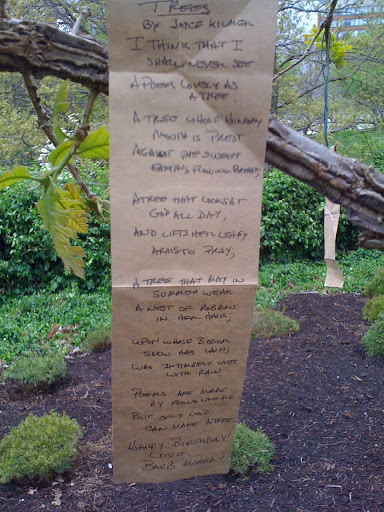 TREES
BY JOYCE KILMER
I THINK THAT I
SHALL NEVER SEE
A POEM LOVELY AS
A TREE.
A TREE WHOSE HUNGRY
MOUTH IS PREST
AGAINST THE SWEET
EARTH'S FLOWING BREAST;
A TREE THAT LOOKS AT
GOD ALL DAY,
AND LIFTS HER LEAFY
ARMS TO PRAY;
A TREE THAT MAY IN
SUMMER WEAR
A NEST OF ROBBINS
IN HER HAIR;
UPON WHOSE BOSOM
SNOW HAS LAIN;
WHO INTIMATELY LIVES
WITH RAIN.
POEMS ARE MADE
BY FOOLS LIKE ME
BUT ONLY GOD
CAN MAKE A TREE
HAPPY BIRTHDAY
LOVE,
BARB MURRAY